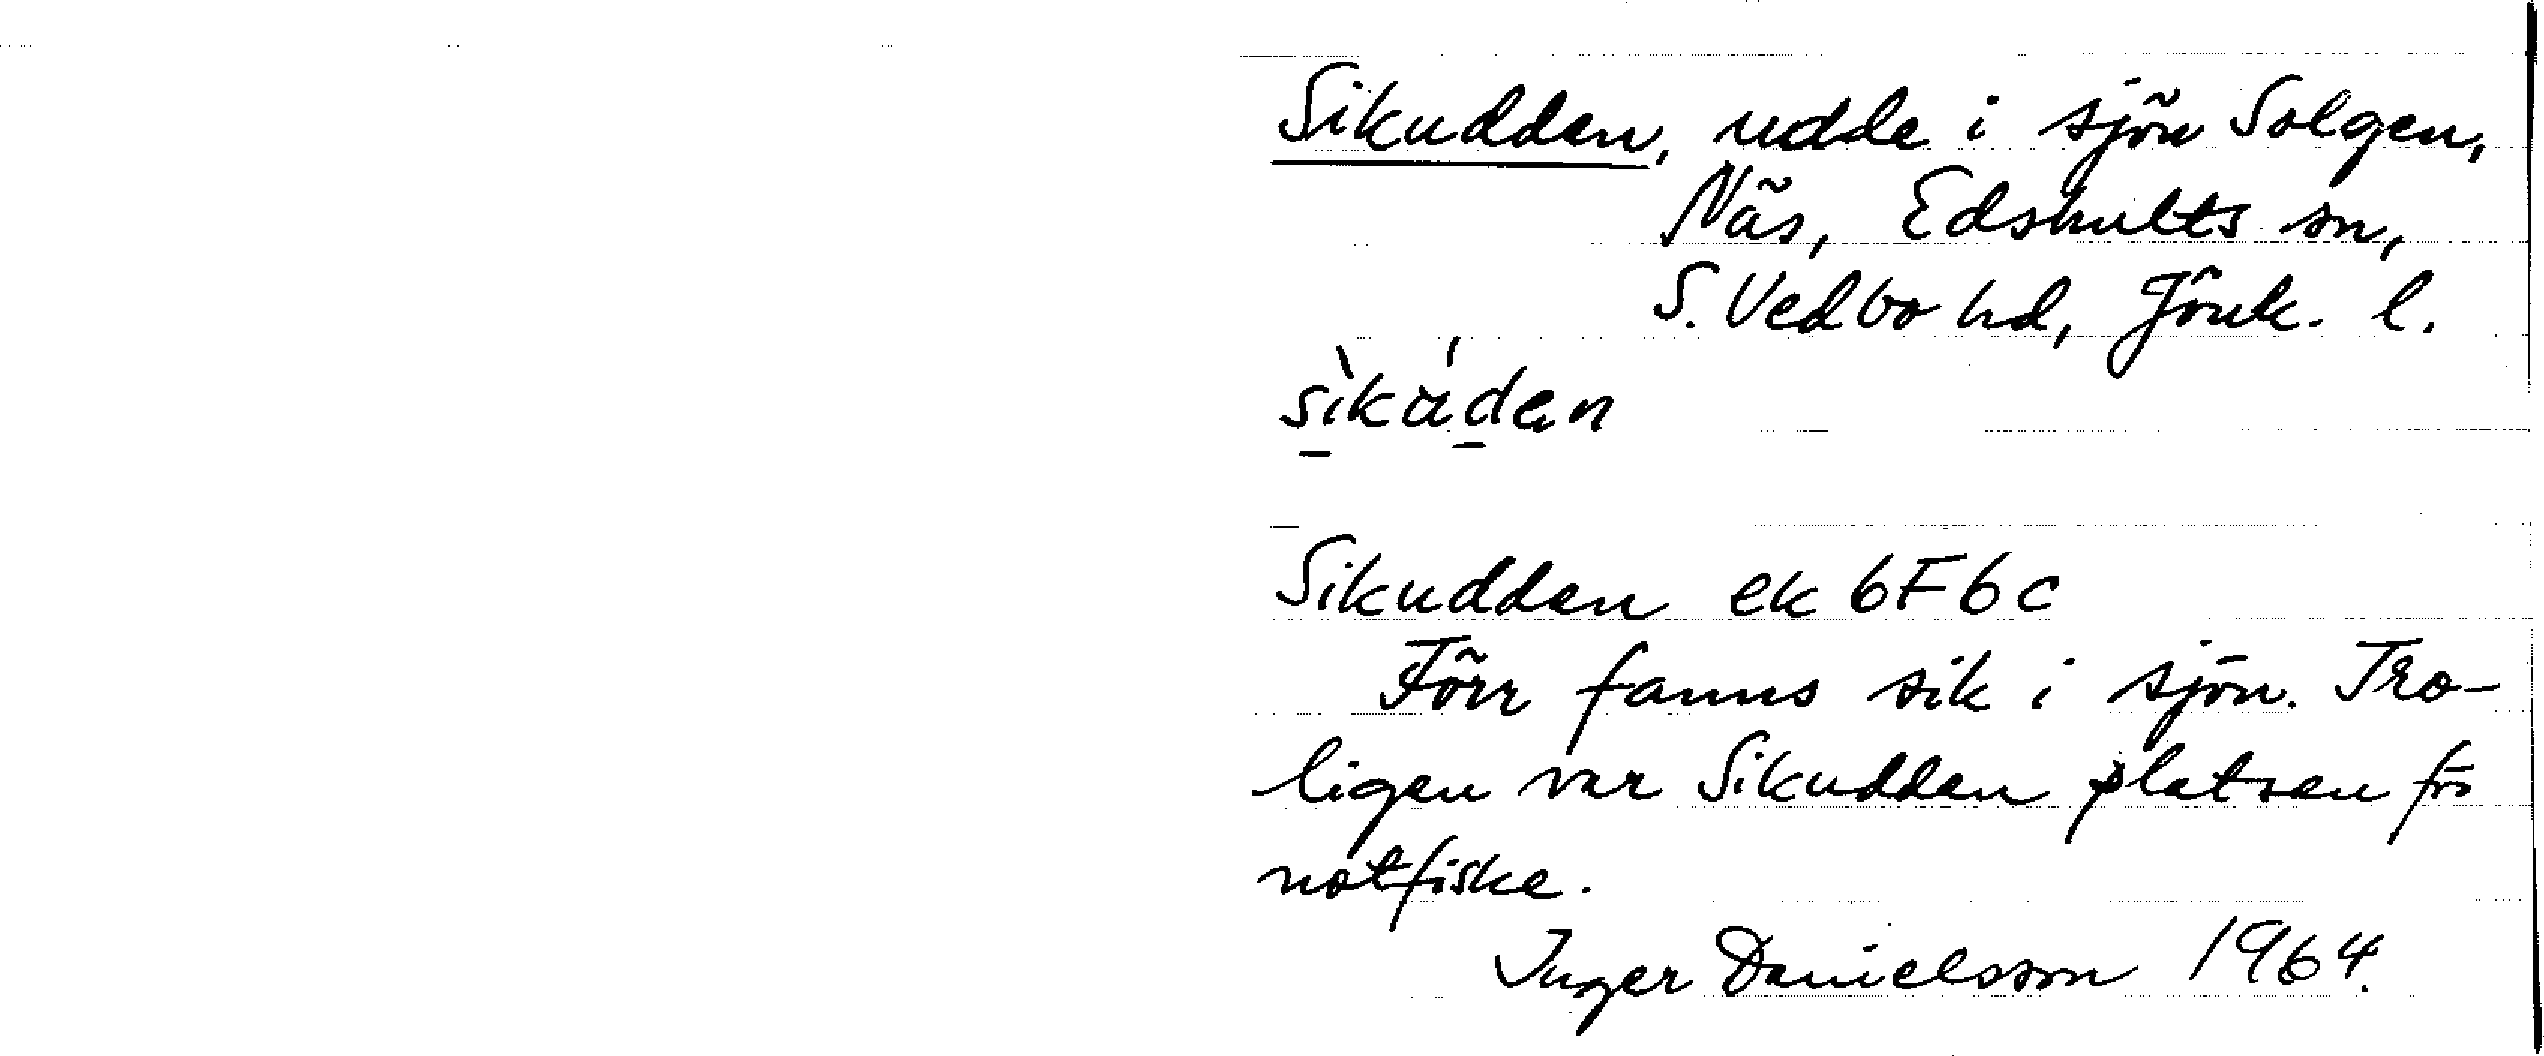 Sikudden, udde i sjön Solgen,
Näs, Edshults sn,
S. Vedbo hd, Jönk. l.
Sikudden ek 6F6c
Förr fanns sik i sjön. Tro-
ligen var Sikudden platsen för
notfiske.
Inger Danielsson 1964.